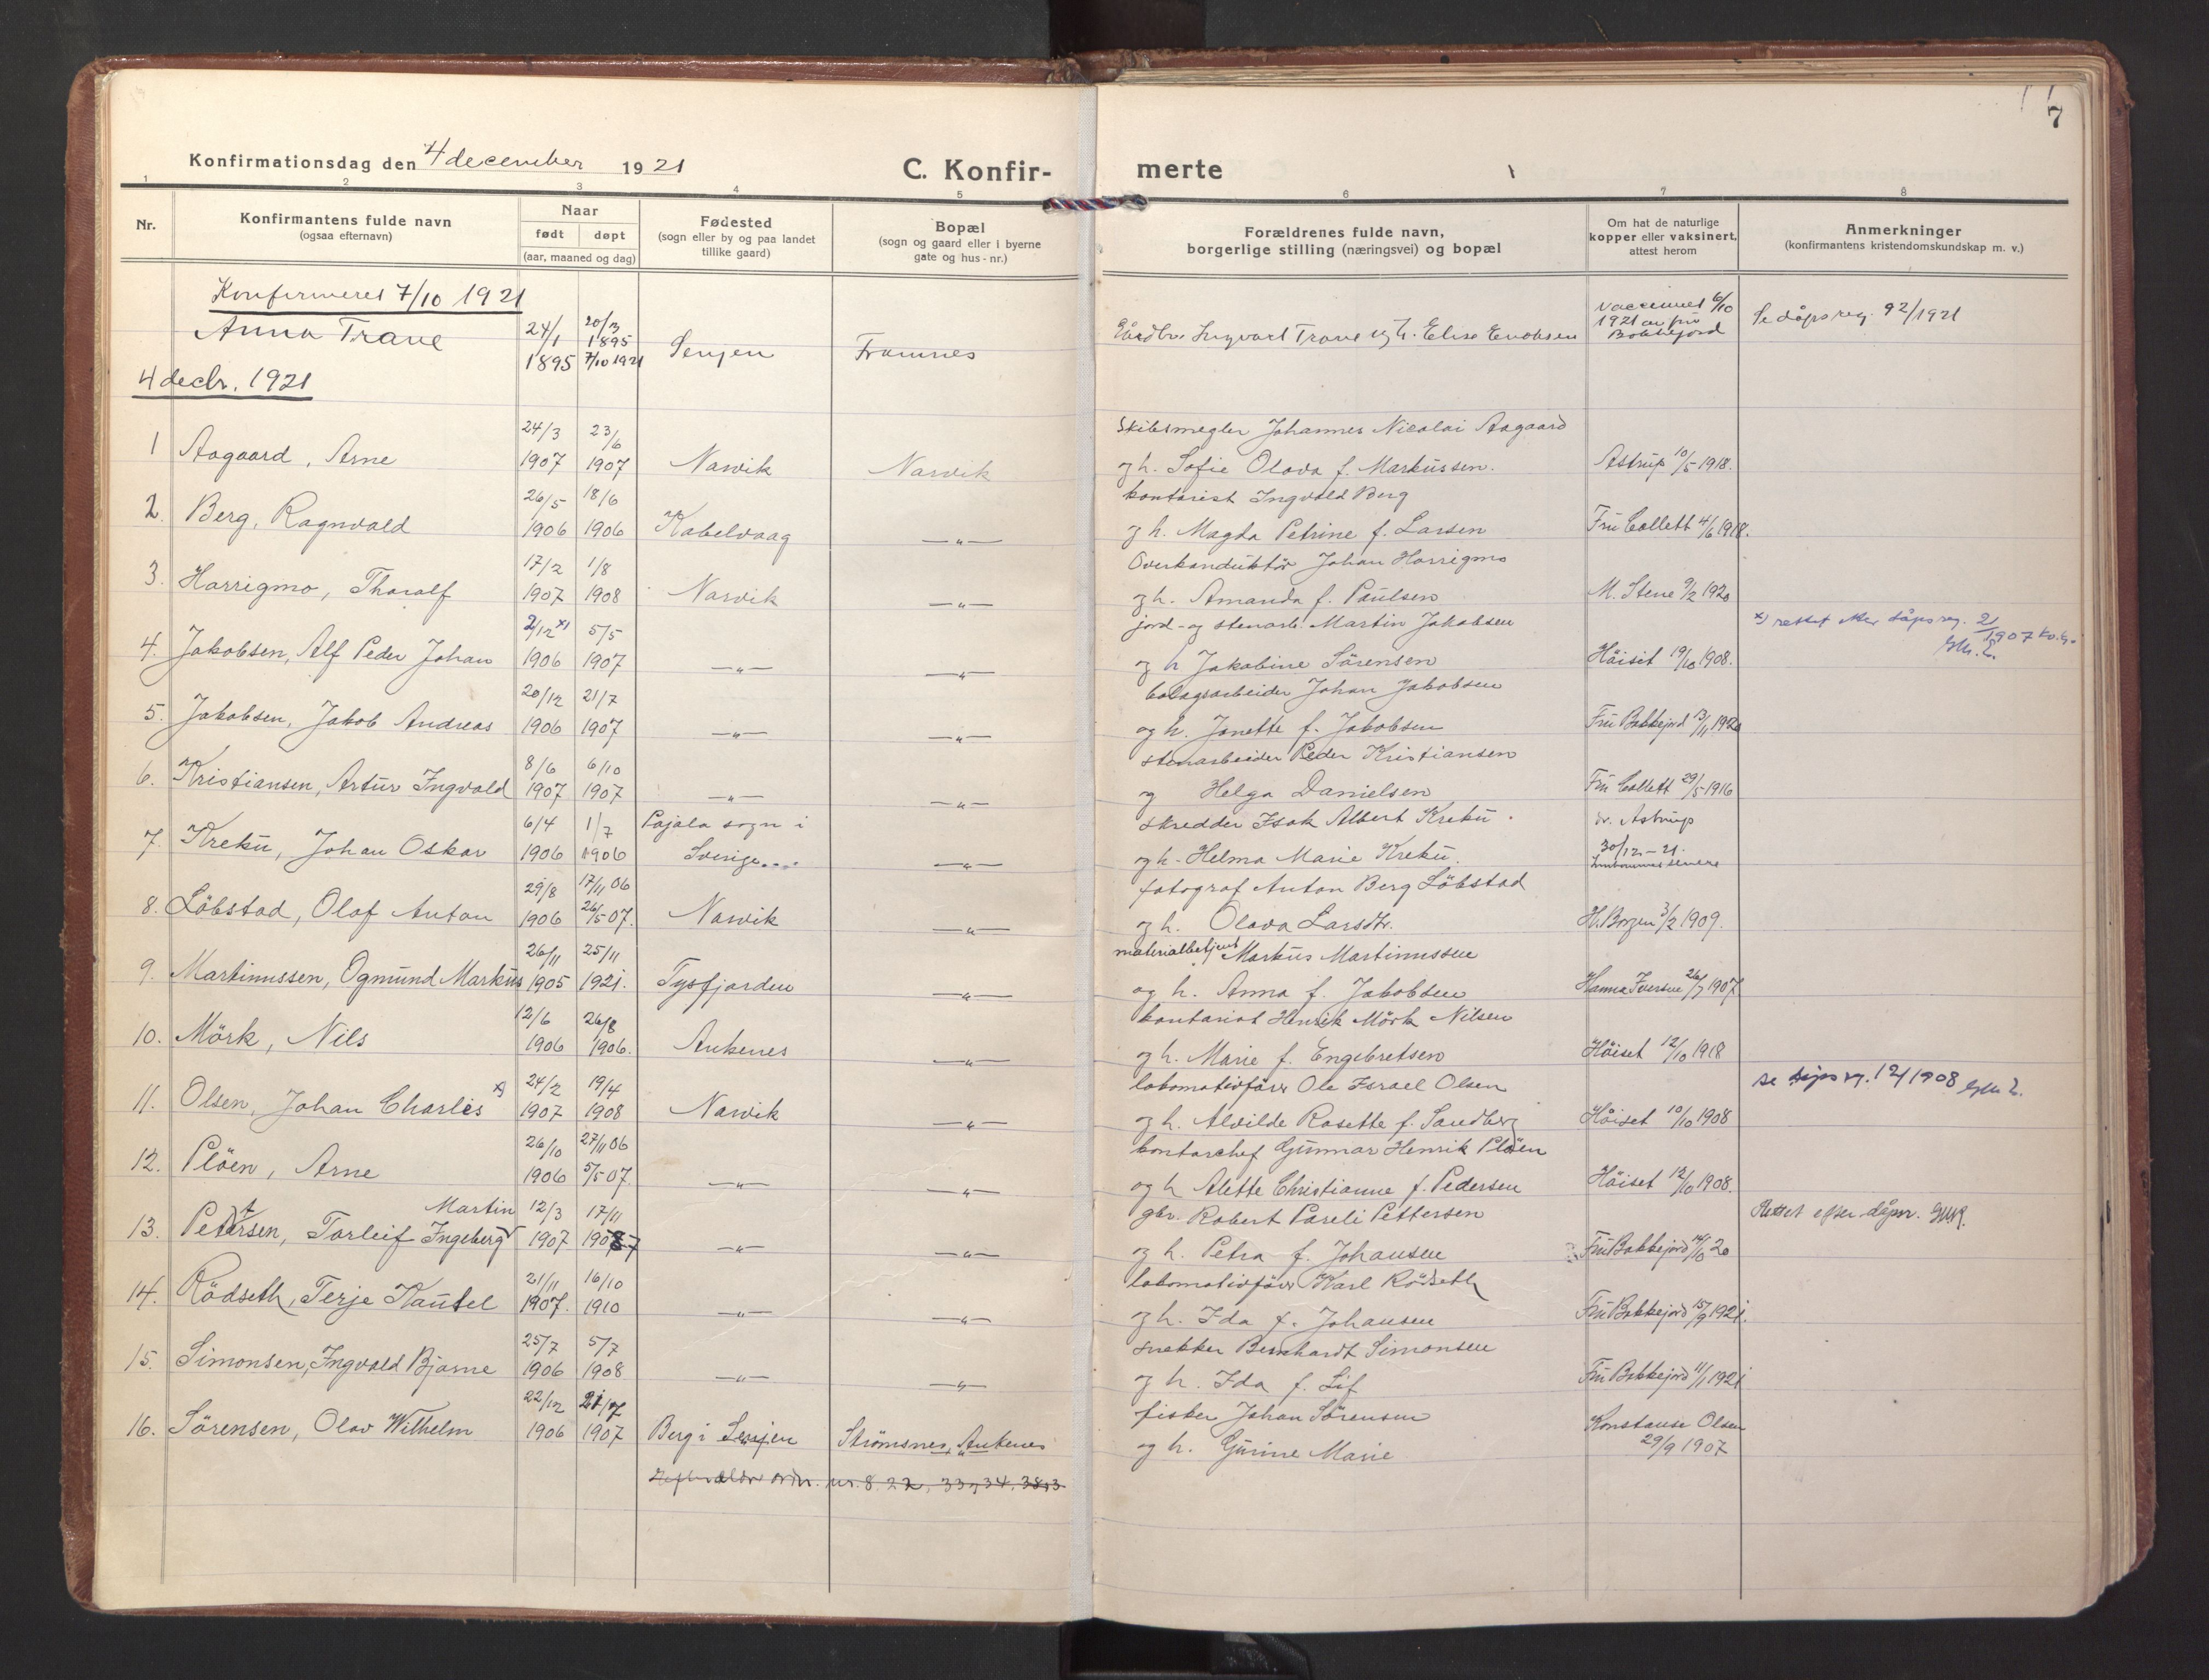 7
Konfirmationsdag den 4 december 1921
C. Konfir-
merte
1 2 3 4 5 6 7 8
Nr.
Konfirmantens fulde navn
(ogsaa efternavn)
Naar
født døpt
(aar, maaned og dag)
Fødested
(sogn eller by og paa landet
tillike gaard)
Bopæl
(sogn og gaard eller i byerne
gate og hus-nr.)
Forældrenes fulde navn,
borgerlige stilling (næringsvei) og bopæl
Om hat de naturlige
kopper eller vaksinert,
attest herom
Anmerkninger
(konfirmantens kristendomskundskap m. v.)
Konfirmeret 7/10 1921
Anna Trane 24/1 1895 20/3 1895 7/10 1921 Senjen Framnes Gårdbr. Ingvart Trane og h. Elise Enoksen 6/10 1921 av fru Bokkejord Se dåpsreg. 92/1921
4 decbr. 1921
1 Aagaard, Arne 24/3 1907 23/6 1907 Narvik Narvik Skibsmegler Johannes Nicolai Aagaard
og h. Sofie Olava f. Markussen. Astrup 10/5 1918.
2. Berg, Ragnvald 26/5 1906 18/6 1906 Kabelvaag —„— kontorist Ingvald Berg
og h. Magda Petrine f. Larsen Fru Collett 4/6 1918.
3. Harrigmo, Thoralf 17/2 1907 1/8 1908 Narvik —„— Overkonduktör Johan Harrigmo
og h. Amanda f. Paulsen M. Stene 9/2 1920
4. Jakobsen, Alf Peder Johan 2/12 x) 1906 5/5 1907 —„— —„— jord- og stenarb. Martin Jakobsen
og h Jakobine Sörensen Höiset 19/10 1908. x) rettet efter dåpsreg. 2/1907
5. Jakobsen, Jakob Andreas 20/12 1906 21/7 1907 —„— —„— bolagsarbeider Johan Jakobsen
og h. Janette f. Jakobsen Fru Bokkejord 13/11 1920
6. Kristiansen, Artur Ingvald 8/6 1907 6/10 1907 —„— —„— stenarbeider Peder Kristiansen
og Helga Danielsen Fru Collett 29/5 1916
7. Kreku, Johan Oskar 6/4 1906 1/7 1906 Pajala sogn i Sverige —„— skredder Isak Albert Kreku.
og h. Helma Marie Kreku. dr. Astrup 30/12-21. senere
8. Löbstad, Olaf Anton 29/8 1906 17/11 06 26/5 07. Narvik —„— fotograf Anton Berg Löbstad
og h. Olava Larsdtr. H. Borgen 3/2 1909.
9. Martinussen, Ogmund Markus 26/11 1905 25/11 1921. Tysfjorden —„— materialbetjent Markus Martinussen
og h. Anna f. Jakobsen Hanna Iversen 26/7 1907
10. Mörk, Nils 12/6 1906 26/8 1906. Ankenes —„— kontorist Henrik Mörk Nilsen
og h. Marie f. Engebretsen Höiset 12/10 1918
11. Olsen, Johan Charles x) 24/2 1907 19/4 1908 Narvik —„— lokomotivförer Ole Israel Olsen
og h. Alvilde Rosette f. Sandberg Höiset 10/10 1908 se dåpsreg. 12/1908
12. Plöen, Arne 26/10 1906 27/11 06 5/5 07. —„— —„— kontorchef Gunnar Henrik Plöen
og h Alette Christianne f. Pedersen Höiset 12/10 1908.
13. Pettersen, Torleif Ingeberg Martin 12/3 1907 17/11 1907 —„— —„— gbr. Robert Pareli Pettersen
og h. Petra f. Johansen Fru Bokkejord 14/10 20 Rettet efter dåpsr.
14. Rödseth, Terje Kautel 21/11 1907. 16/10 1910 —„— —„— lokomotivförer Karl Rödseth
og h. Ida f. Johansen Fru Bokkejord 15/9 1921.
15. Simonsen, Ingvald Bjarne 25/7 1906 5/7 1908 —„— —„— snekker Bernhardt Simonsen
og h. Ida f. Lif Fru Bokkejord 11/1 1921
16. Sörensen, Olav Wilhelm 22/12 1906 21/7 1907 Berg i Senjen Strömsnes, Ankenes fisker Johan Sörensen
og h. Gurine Marie Konstanse Olsen 29/9 1907
nr. 8. 22, 33 og 34, 38